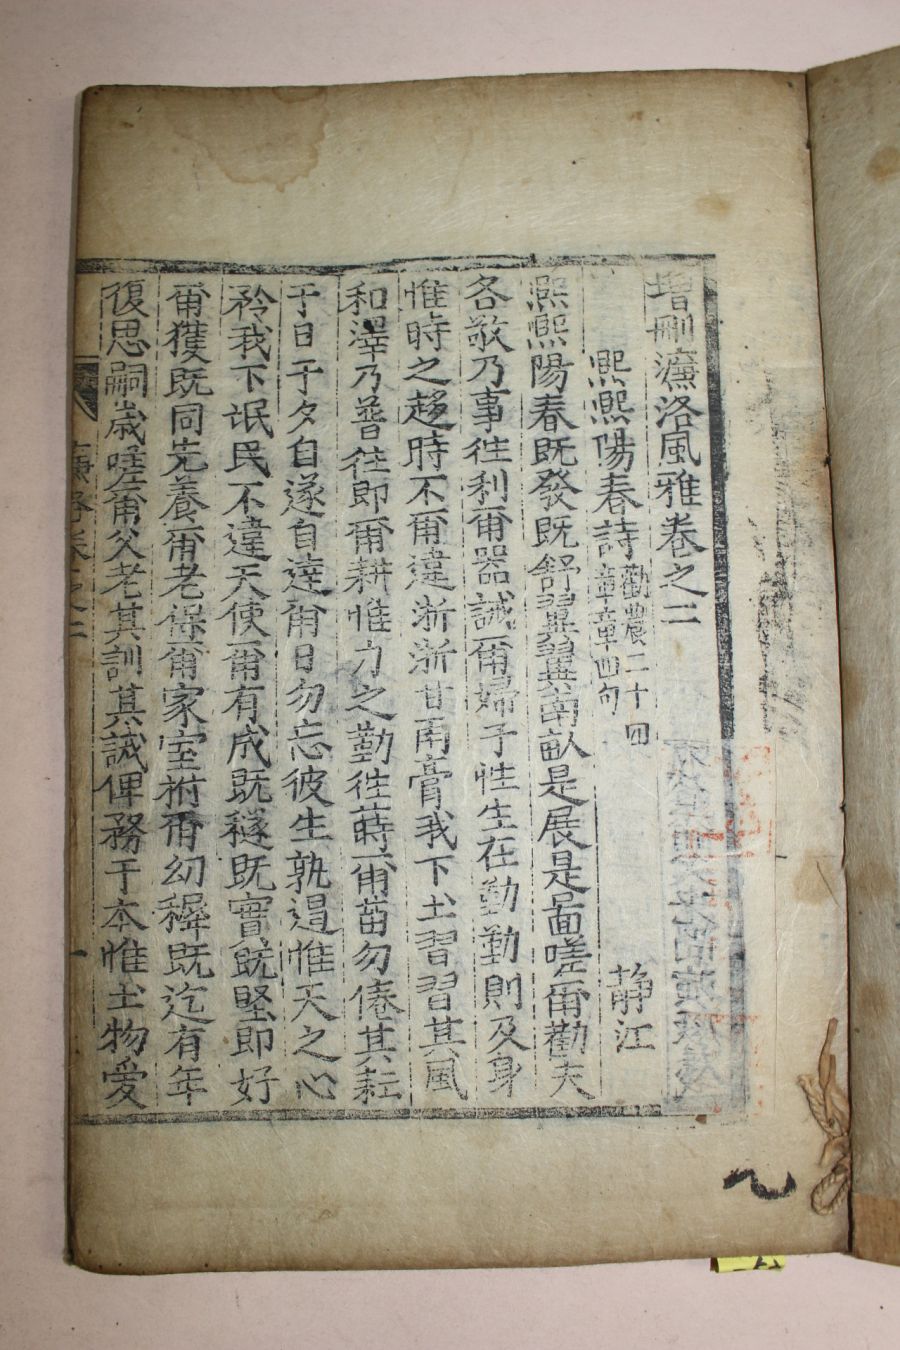 增刪濂洛風雅卷之二
熙熙陽春詩 勸農二十四章章四句 靜江
熙熙陽春既發既舒翼翼南畝是展是圖嗟爾勸夫
各敬乃事徃利爾器誡爾婦子性生在勤勤則及身
惟時之趍時不爾違浙浙甘雨膏我下土習習其風
和澤乃普徃即爾耕惟力之勤徃蒔爾苗勿倦其耘
于日于夕自遂自達爾日勿忘彼生孰遏惟天之心
矜我下氓民不違天使爾有成既穟既實既堅即好
爾獲既同先養爾老保爾家室祔爾幼穉既迄有年
復思嗣歲嗟爾父老其訓其誡俾務于本惟土物愛
濂洛卷之二
一